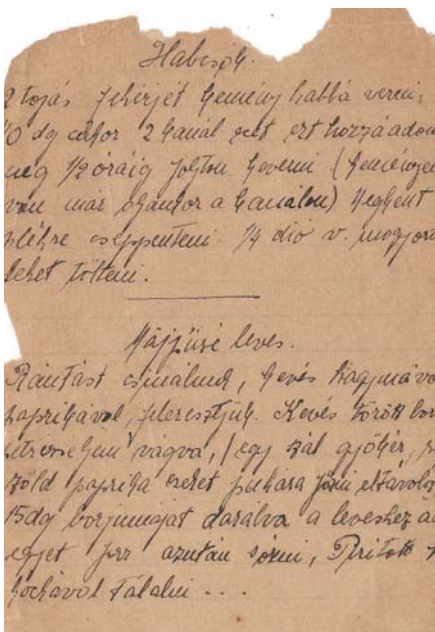 Habcsók.
2 tojás fehérjét kemény habbá verni,
10 dg cukor 2 kanál ecet ezt hozzáadom
még 1/2 óráig folyton keverni (
van már a kanálon)
plébre cseppenteni 1/4 dió v. mogyoró
lehet tölteni.
Májpüré leves.
Rántást csinálunk, kevés hagymáva
paprikával, feleresztjük. Kevés törött bor
petrezselyem vágva, egy szál gyökér,
zöld paprika ezeket puhára főzni
15dg borjumájat darálva a leveshez
egyet forr azután sózni, Pirított
kockával tálalni ...